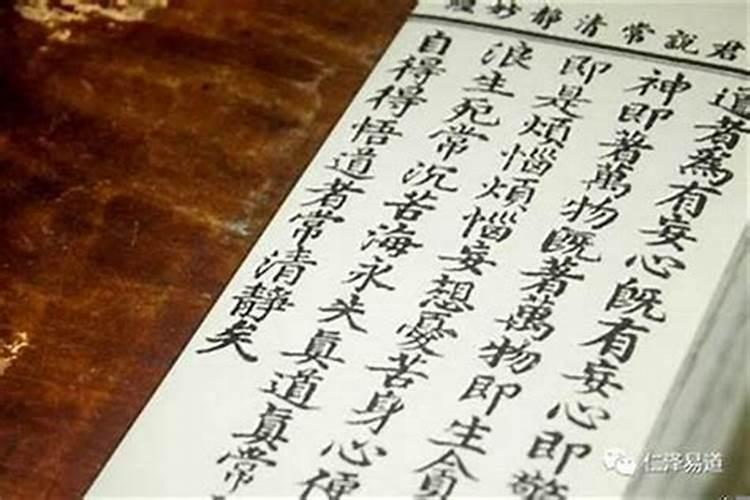 君說常清靜妙
道者為有妄心既有妄心即驚
神即著萬物既著萬物即生貪
即是煩惱煩惱妄想憂苦身心便
浪生死常沉苦海永失眞道眞常
自得得悟道者常清靜矣
仁泽易道